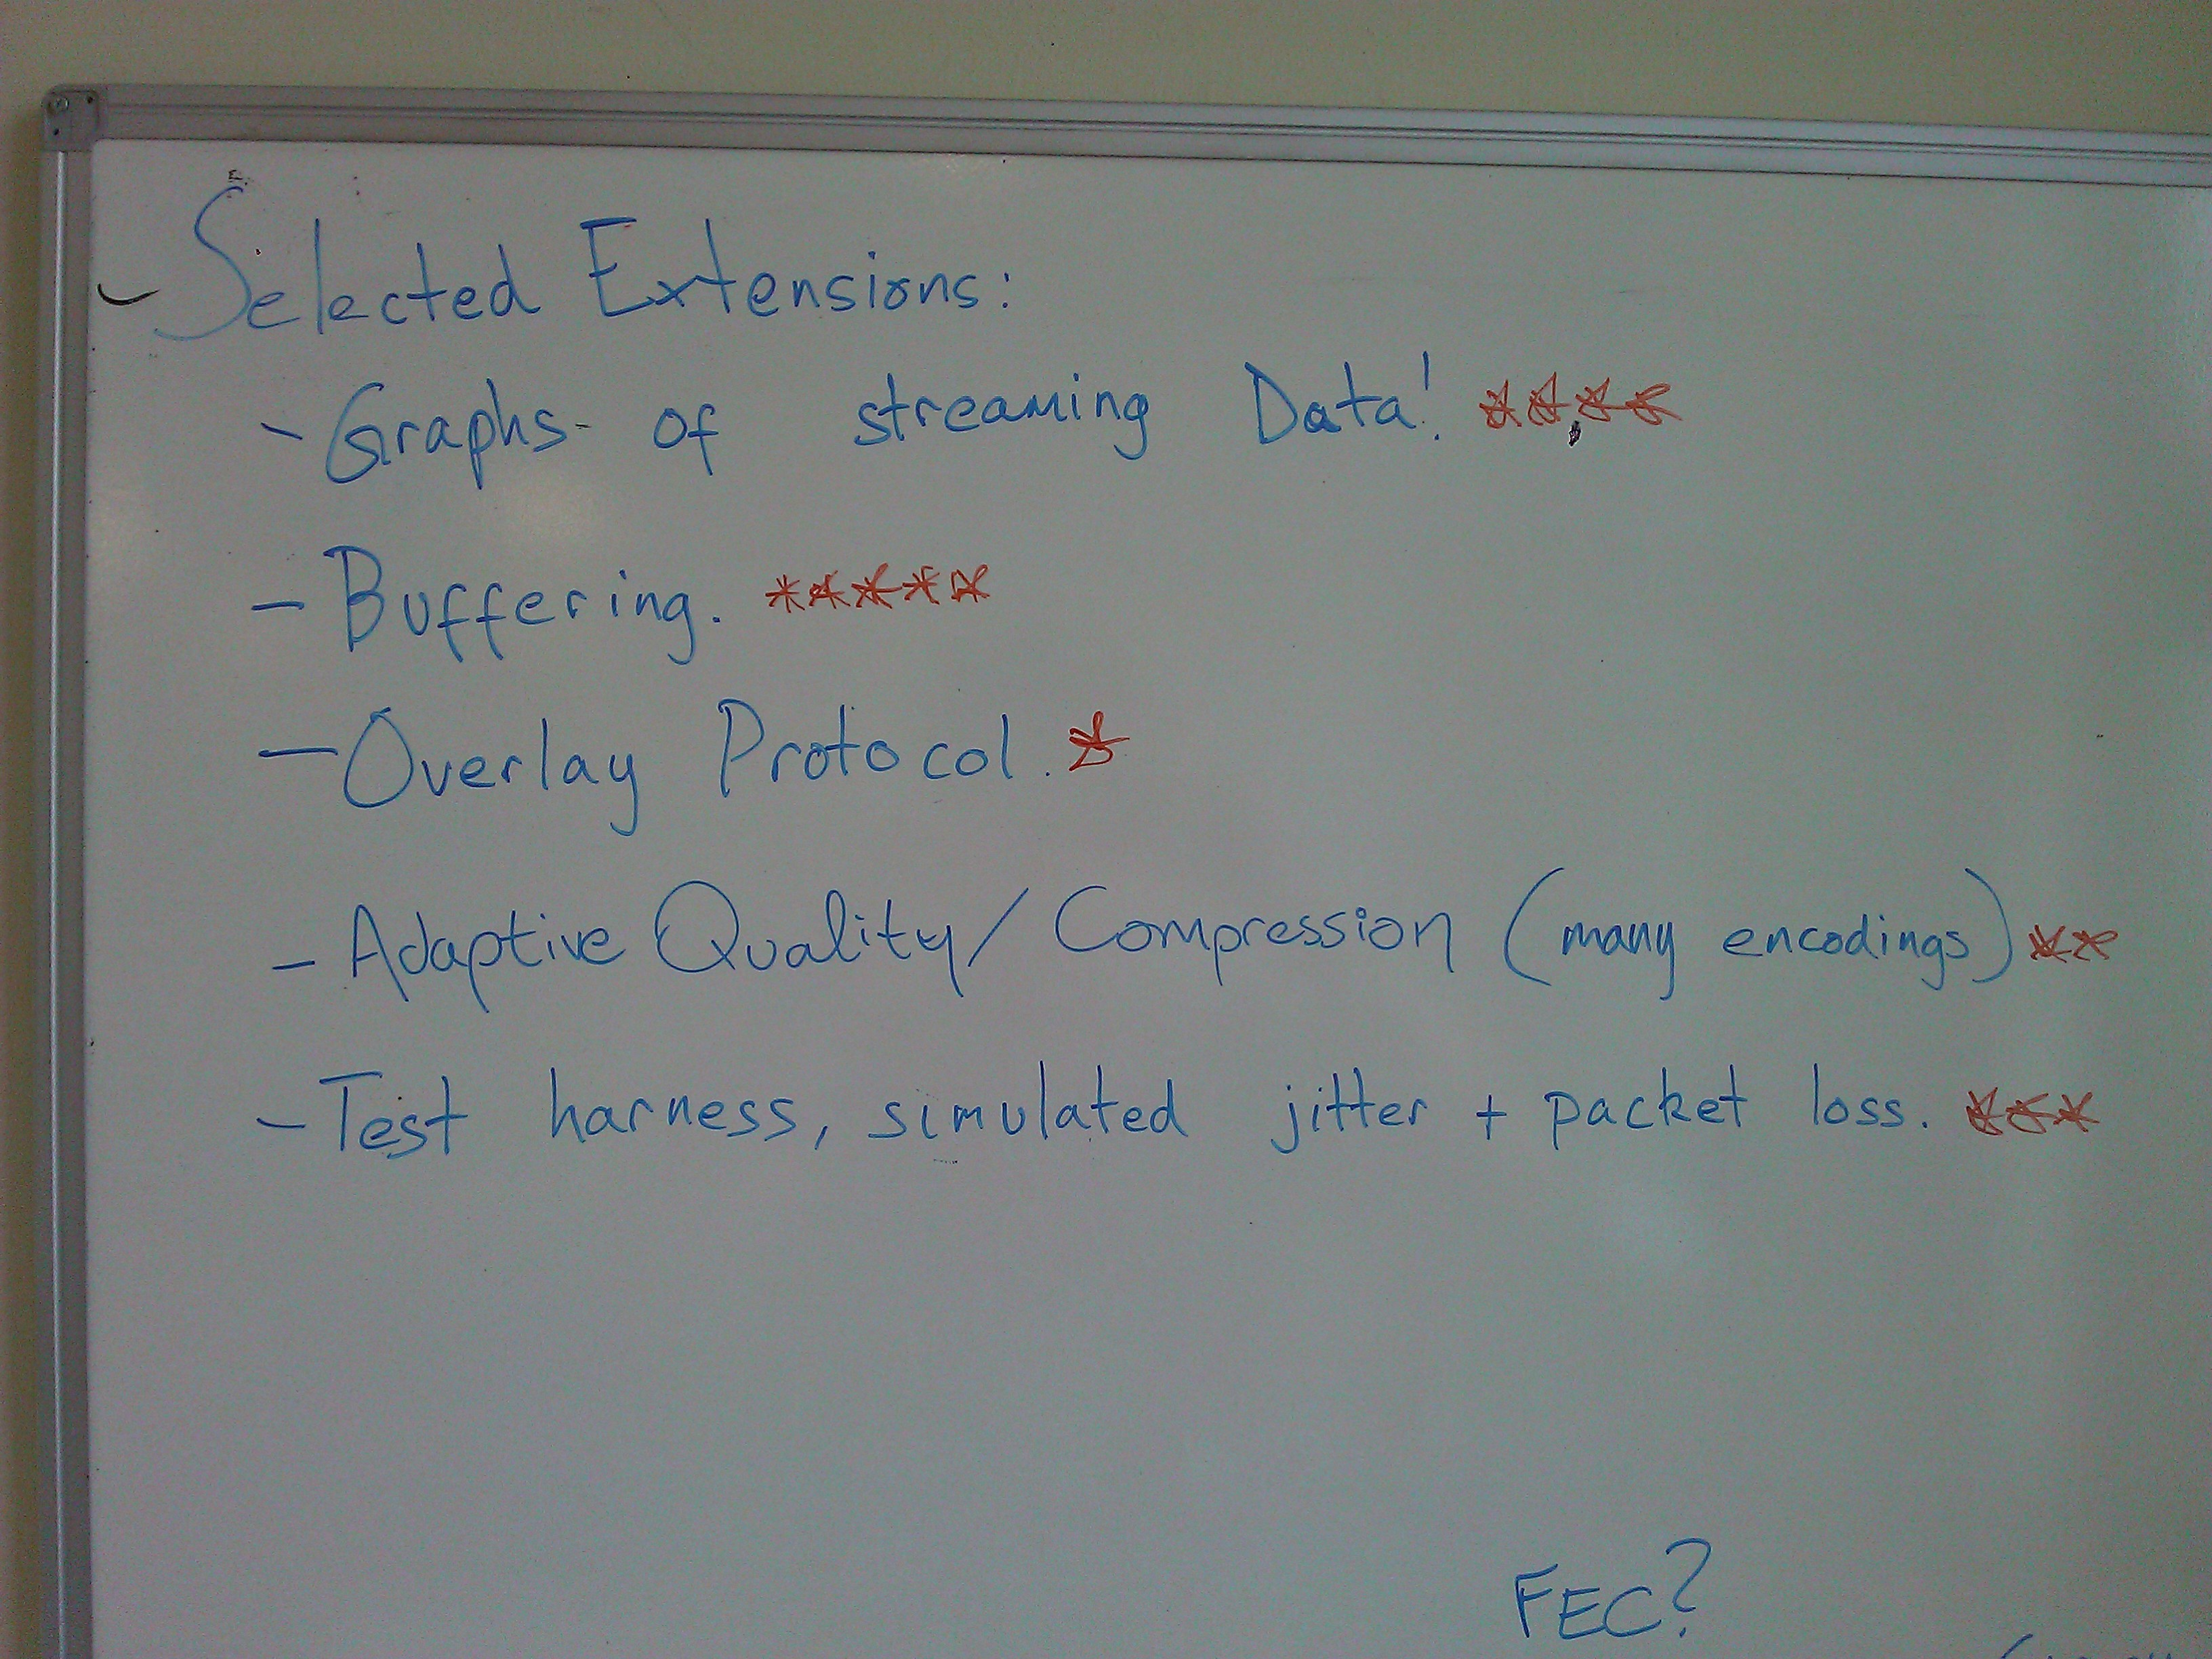 - Selected Extensions:
- Graphs of streaming Data! ****
- Buffering. *****
- Overlay Protocol. *
- Adaptive Quality/Compression (many encodings) **
- Test harness, simulated jitter + packet loss. ***
FEC?